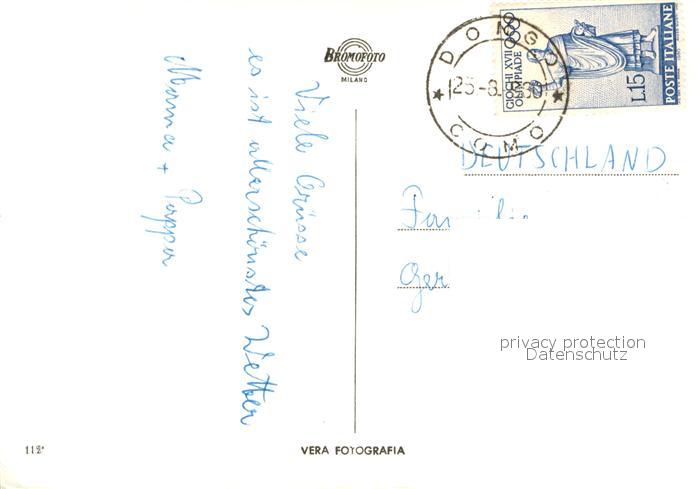 BROMOFOTO
MILANO
Viele Grüsse
es ist allerschönstes Wetter
Mama + Pappa
DONGO
COMO
25-8
GIOCHI XVII
OLIMPIADE
L.15
POSTE ITALIANE
DEUTSCHLAND
Familie
Ger
privacy protection
Datenschutz
112
VERA FOTOGRAFIA